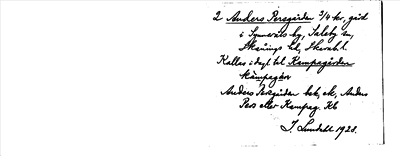 2 Anders Persgården 3/4 kr, gård
i Synnerås by, Saleby sn,
Skånings hd, Skarabl.
Kallas i dagl. tal Kampagården
kampagån
Anders Persgården beb. ek. Anders
Pers eller Kampag. Kb
J. Lundahl 1928.